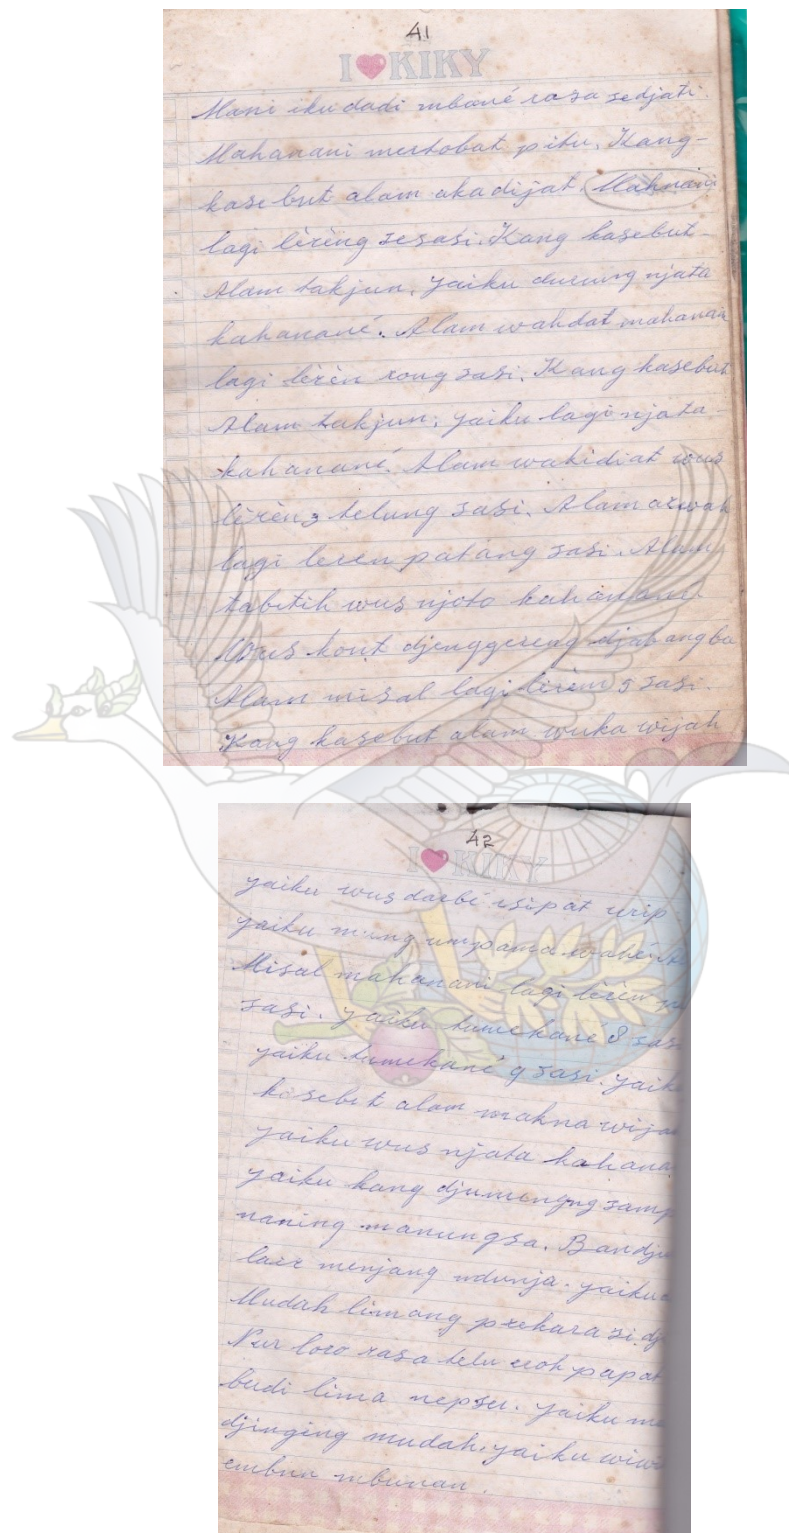 41
I KIKY
Mani iku dadi mbané rasa sedjati
Mahanani mertobat pitu. Kang-
kasebut alam akadijat. Mahnani
lagi lèrèng sesasi. Kang kasebut
Alam takjun. Jaiku durung njata
kahanané. Alam wahdat mahanani
lagi lèrèn rong sasi. Kang kasebut
Alam takjun; jaiku lagi njata
kahanané. Alam wakidiat wus
lèrèng telung sasi. Alam arwah
lagi leren patang sasi. Alam
tabitih wus njoto kahanané
Wus kont djenggereng djabang ba
Alam misal lagi lèrèn 5 sasi.
Kang kasebut alam wuka wijah
42
I KIKY
jaiku wus darbé sipat urip
jaiku mung umpama waé.
Misal mahanani lagi lèrèn
sasi. Jaiku tumekané 8 sasi
jaiku tumekané 9 sasi. Jaiku
kasebut alam makna wija
jaiku wus njata kahana
jaiku kang djumeng̣ng samp
naning manungsa. Bandju
lair menjang ndunja. jaiku
Mudah limang prekara si dj
Nur loro rasa telu roh papat
budi lima nepsu. Jaiku ma
djinging mudah. jaiku wiwi
embun mbunan.